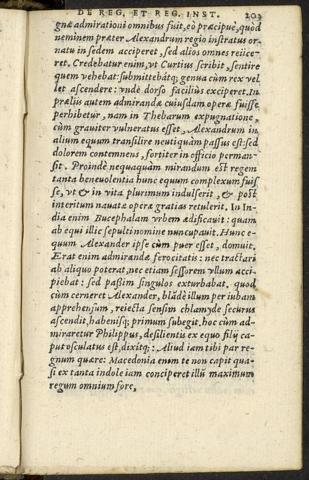 DE REG. ET REG. INST. 203
gnæ admirationi omnibus fuit, eò præcipuè, quòd
neminem præter Alexandrum regio instratus or-
natu in sedem acciperet, sed alios omnes reiice-
ret. Credebatur enim, vt Curtius scribit, sentire
quem vehebat: submittebátq; genua cùm rex vel
let ascendere: vnde dorso facilius exciperet. In
præliis autem admirandæ cuiusdam operæ fuisse
perhibetur, nam in Thebarum expugnatione,
cùm grauiter vulneratus esset, Alexandrum in
alium equum transilire neutiquàm passus est: sed
dolorem contemnens, fortiter in officio perman-
sit. Proindè nequaquàm mirandum est regem
tanta beneuolentia hunc equum complexum fuis-
se, vt & in vita plurimum indulserit, & post
interitum nauatæ operæ gratias retulerit. In In-
dia enim Bucephalam vrbem ædificauit: quam
ab equi illic sepulti nomine nuncupauit. Hunc e-
quum Alexander ipse cùm puer esset, domuit.
Erat enim admirandæ ferocitatis: nec tractari
ab aliquo poterat, nec etiam sessorem vllum acci-
piebat: sed passim singulos exturbabat. quod
cùm cerneret Alexander, blādè illum per iubam
apprehensum, reiecta sensim chlamyde securus
ascendit, habenisq; primum subegit, hoc cùm ad-
miraretur Philippus, desilientis ex equo filij ca-
put osculatus est, dixitq;: Aliud iam tibi par re-
gnum quære: Macedonia enim te non capit qua-
si ex tanta indole iam conciperet illū maximum
regum omnium fore,